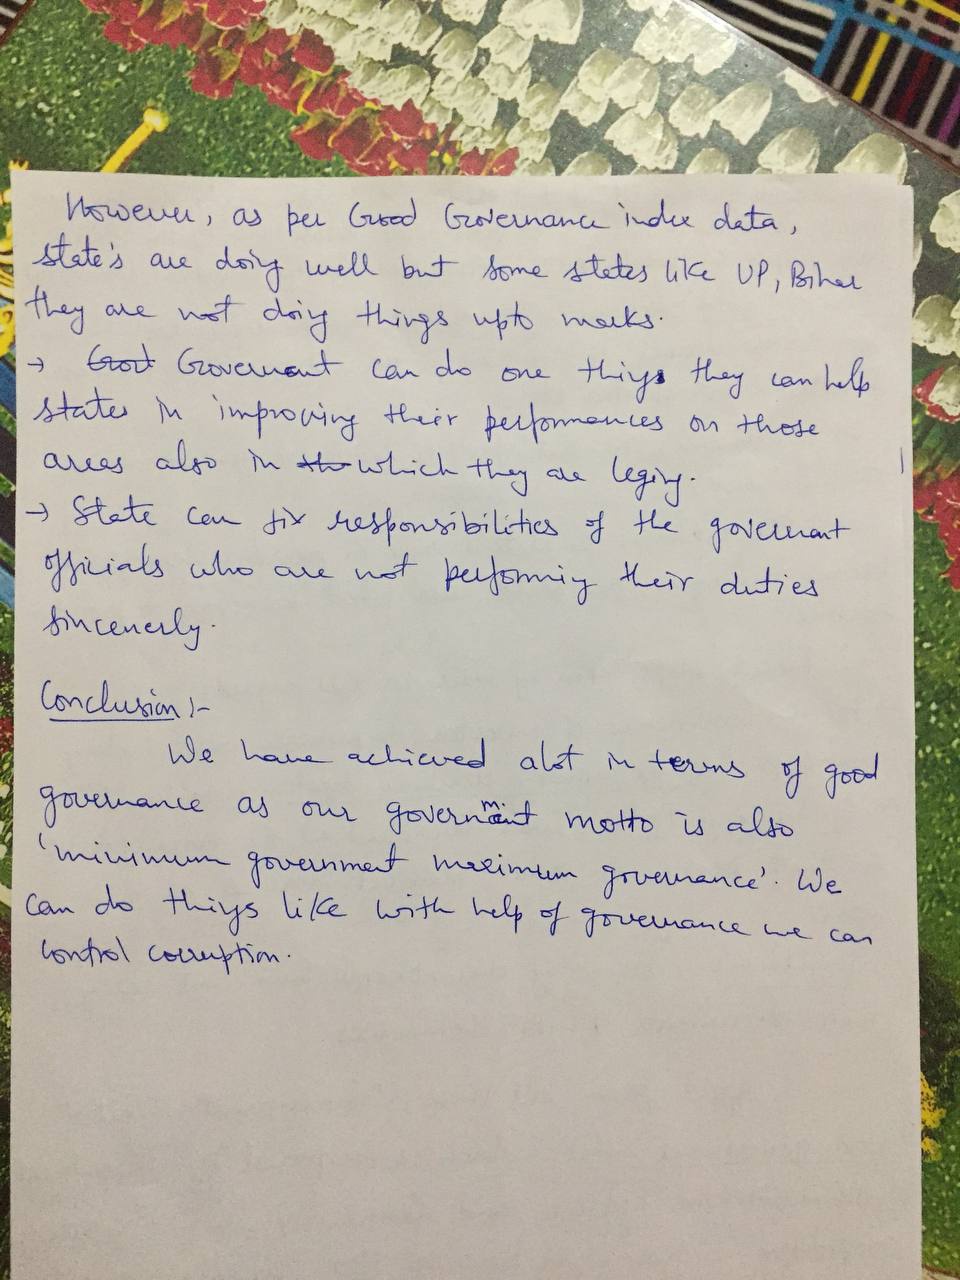 However, as per Good Governance index data,
state's are doing well but some states like UP, Bihar
they are not doing things upto marks.
→ Good Government can do one things they can help
states in improving their performances on those
areas also in the which they are leging.
→ State can fix responsibilities of the government
officials who are not performing their duties
sincenerly.
Conclusion :-
We have achieved alot in terms of good
governance as our government motto is also
'minimum government maximum governance'. We
can do things like with help of governance we can
control corruption.